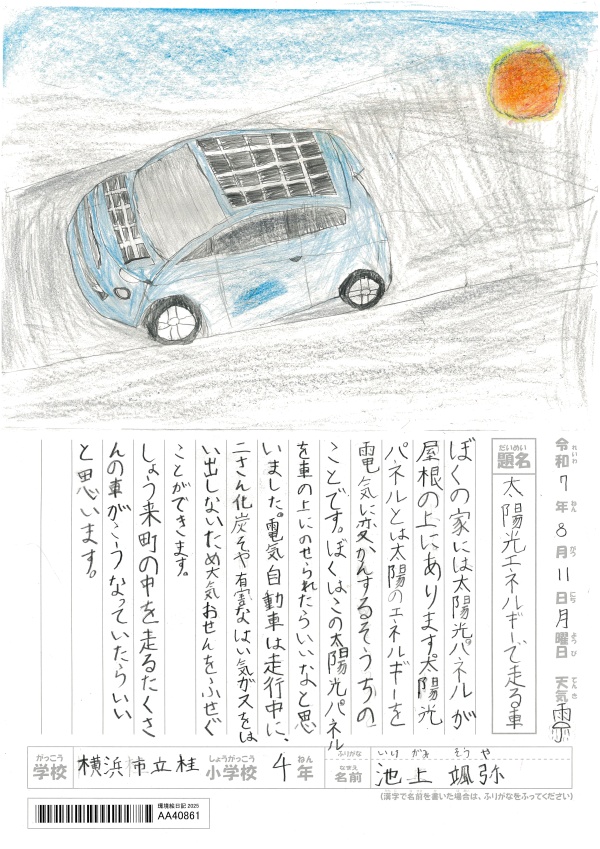 令和7年8月11日月曜日 天気雨
れいわ ねん がつ にち ようび てんき
だいめい
題名 太陽光エネルギーで走る車
ぼくの家には太陽光パネルが
屋根の上にあります。太陽光
パネルとは太陽のエネルギーを
電気に変かんするそうちの
ことです。ぼくはこの太陽光パネル
を車の上にのせられたらいいなと思
いました。電気自動車は走行中に、
二さん化炭そや有害なはい気ガスをは
い出しないため大気おせんをふせぐ
ことができます。
しょう来町の中を走るたくさ
んの車がこうなっていたらいい
と思います。
がっこう しょうがっこう ねん
学校 横浜市立桂 小学校 4年
ふりがな いけ がみ そう や
なまえ
名前 池上 颯弥
(漢字で名前を書いた場合は、ふりがなをふってください)
環境絵日記 2025
AA40861